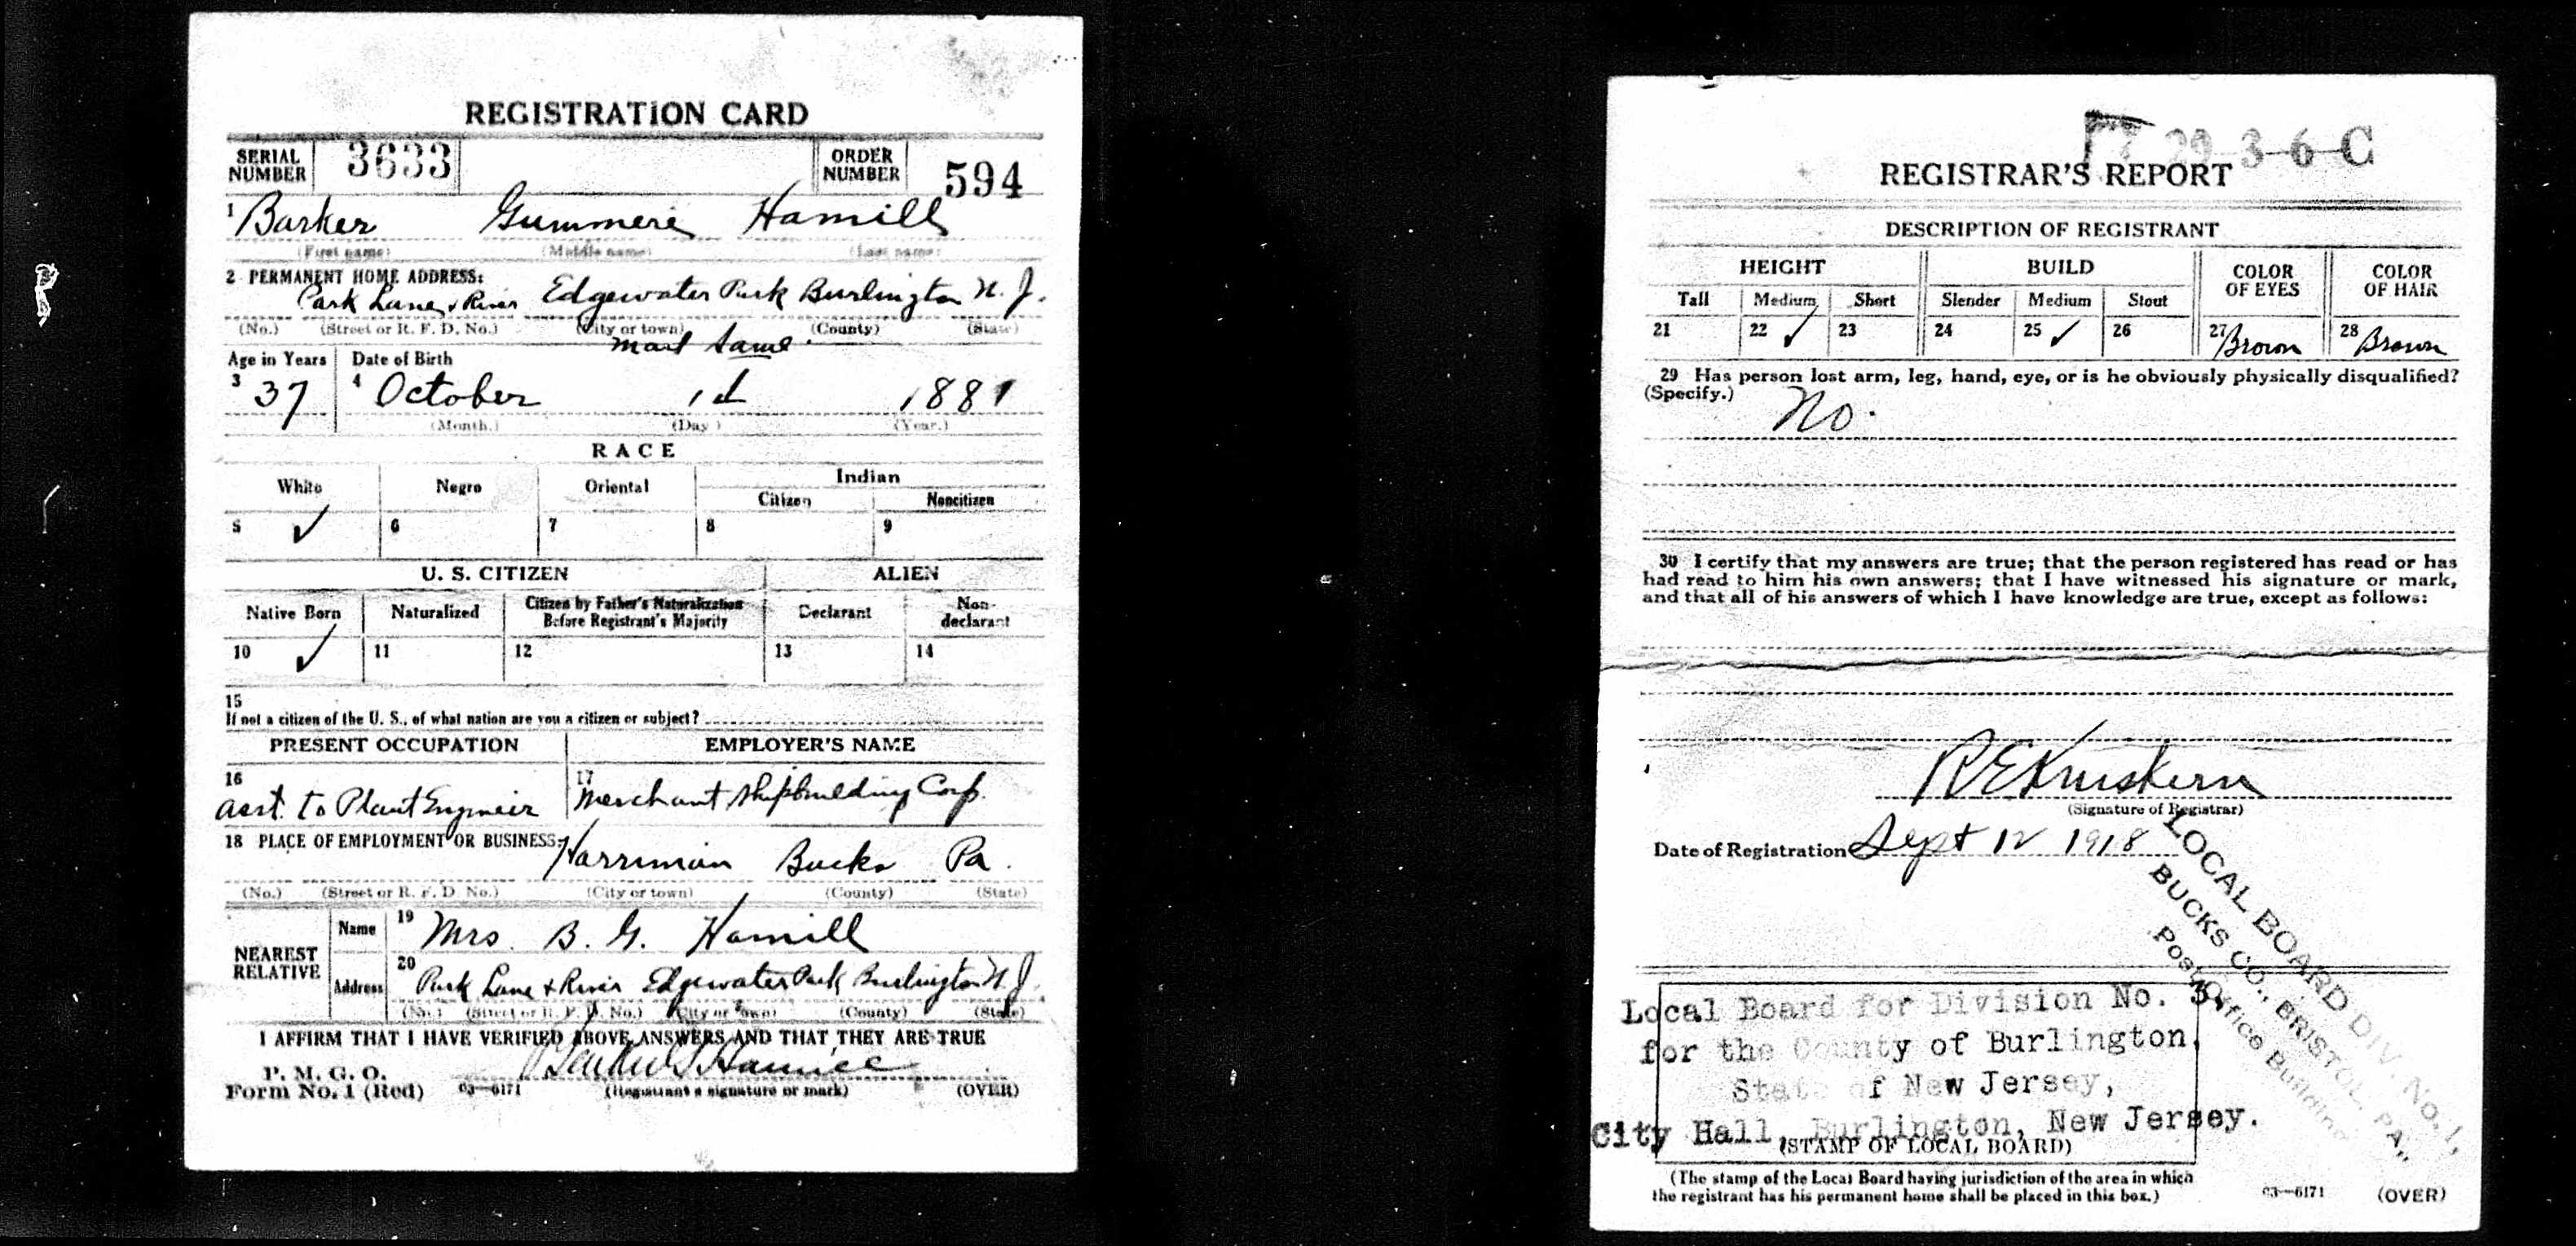 REGISTRATION CARD
SERIAL NUMBER 3633 ORDER NUMBER 594
1 Barker Gummere Hamill
(First name) (Middle name) (Last name)
2 PERMANENT HOME ADDRESS:
Park Lane & River Edgewater Park Burlington N. J.
(No.) (Street or R. F. D. No.) (City or town) (County) (State)
Mail Same
Age in Years Date of Birth
3 37 4 October 1st 1881
(Month.) (Day) (Year.)
RACE
White Negro Oriental Indian
Citizen Noncitizen
5 ✓ 6 7 8 9
U. S. CITIZEN ALIEN
Native Born Naturalized Citizen by Father's Naturalization Before Registrant's Majority Declarant Non-declarant
10 ✓ 11 12 13 14
15
If not a citizen of the U. S., of what nation are you a citizen or subject?
PRESENT OCCUPATION EMPLOYER'S NAME
16 asst. to Plant Engineer 17 Merchant Shipbuilding Corp.
18 PLACE OF EMPLOYMENT OR BUSINESS:
Harriman Bucks Pa.
(No.) (Street or R. F. D. No.) (City or town) (County) (State)
NEAREST RELATIVE
Name 19 Mrs. B. G. Hamill
Address 20 Park Lane & River Edgewater Park Burlington N. J.
(No.) (Street or R. F. D. No.) (City or town) (County) (State)
I AFFIRM THAT I HAVE VERIFIED ABOVE ANSWERS AND THAT THEY ARE TRUE
P. M. G. O.
Form No. 1 (Red) 03—6171 Barker G Hamill
(Registrant's signature or mark) (OVER)
3-6 C
REGISTRAR'S REPORT
DESCRIPTION OF REGISTRANT
HEIGHT BUILD COLOR OF EYES COLOR OF HAIR
Tall Medium Short Slender Medium Stout
21 22 ✓ 23 24 25 ✓ 26 27 Brown 28 Brown
29 Has person lost arm, leg, hand, eye, or is he obviously physically disqualified?
(Specify.) No.
30 I certify that my answers are true; that the person registered has read or has
had read to him his own answers; that I have witnessed his signature or mark,
and that all of his answers of which I have knowledge are true, except as follows:
(Signature of Registrar)
Date of Registration Sept 12 1918
LOCAL BOARD DIV. No. 1,
BUCKS CO., BRISTOL, PA.,
Post Office Building
Local Board for Division No. 3,
for the County of Burlington,
State of New Jersey,
City Hall, Burlington, New Jersey.
(STAMP OF LOCAL BOARD)
(The stamp of the Local Board having jurisdiction of the area in which
the registrant has his permanent home shall be placed in this box.)
03—6171 (OVER)